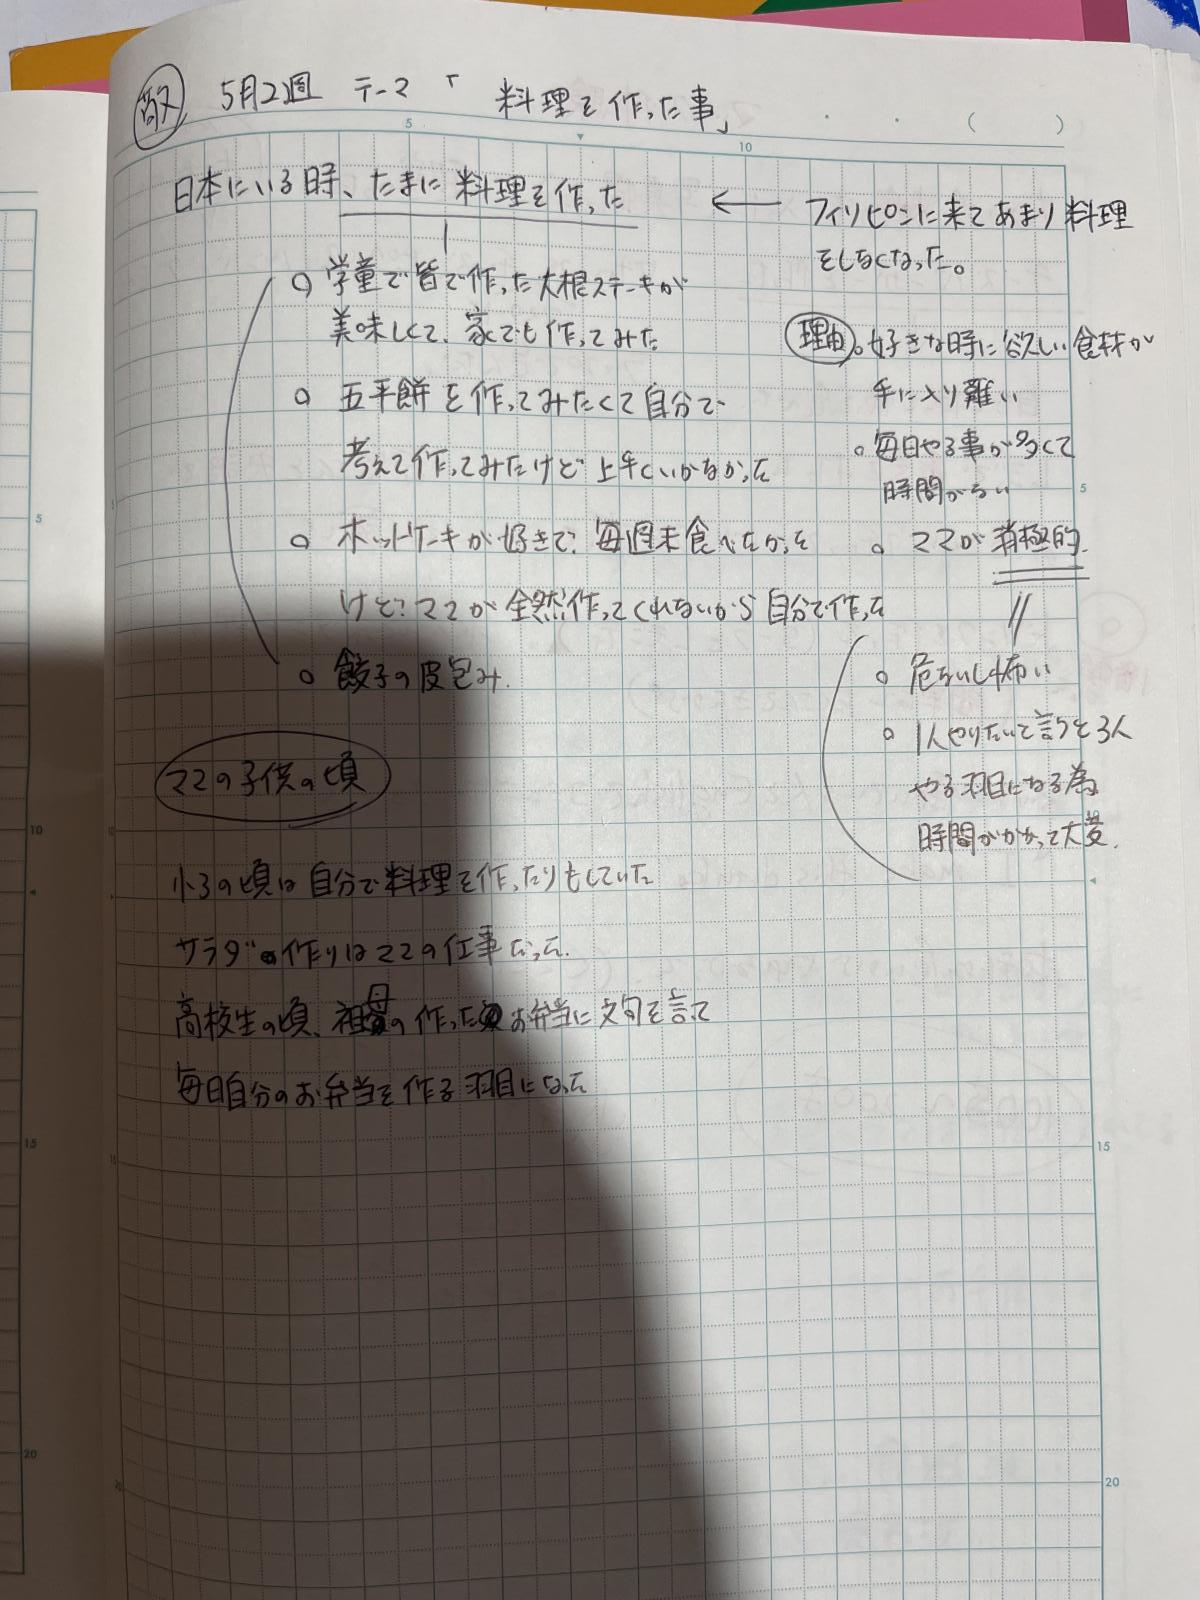 敬 5月2週 テーマ「料理を作った事」 ( )
日本にいる時、たまに料理を作った
○ 学童で皆で作った大根ステーキが
美味しくて、家でも作ってみた
○ 五平餅を作ってみたくて自分で
考えて作ってみたけど上手くいかなかった
○ ホットケーキが好きで、毎週末食べたかった
けど?ママが全然作ってくれないから自分で作った
○ 餃子の皮包み.
← フィリピンに来てあまり料理
をしなくなった。
理由 ○ 好きな時に欲しい食材が
手に入り難い
○ 毎日やる事が多くて
時間がない
○ ママが消極的
〃
○ 危ないし怖い
○ 1人やりたいと言うと3人
やる羽目になる為
時間がかかって大変.
ママの子供の頃
小3の頃は自分で料理を作ったりもしていた
サラダ作りはママの仕事だった.
高校生の頃、祖母の作ったお弁当に文句を言って
毎日自分のお弁当を作る羽目になった
5
10
5
15
20
5
10
15
20